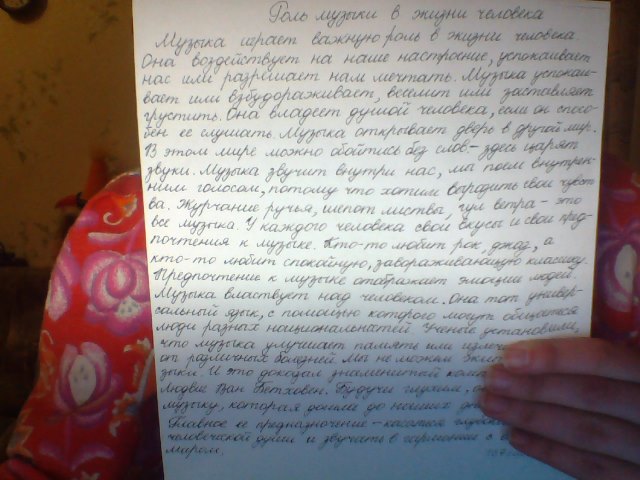 Роль музыки в жизни человека
Музыка играет важную роль в жизни человека.
Она воздействует на наше настроение, успокаивает
нас или разрешает нам мечтать. Музыка успокаи-
вает или взбудораживает, веселит или заставляет
грустить. Она владеет душой человека, если он спосо-
бен ее слушать. Музыка открывает дверь в другой мир.
В этом мире можно обойтись без слов - здесь царят
звуки. Музыка звучит внутри нас, мы поем внутрен-
ним голосом, потому что хотим выразить свои чувст-
ва. Журчание ручья, шепот листвы, гул ветра - это
все музыка. У каждого человека свои вкусы и свои пред-
почтения к музыке. Кто-то любит рок, джаз, а
кто-то любит спокойную, завораживающую классику.
Предпочтение к музыке отображает эмоции людей.
Музыка властвует над человеком. Она тот универ-
сальный язык, с помощью которого могут общаться
люди разных национальностей. Ученые установили,
что музыка улучшает память или
от различных болезней. Мы не можем
зыки. И это доказал знаменитый
Людвиг Ван Бетховен. Будучи глухим,
музыку, которая дошла до наших
Главное ее предназначение - касаться
человеческой души и звучать в гармонии с
миром.